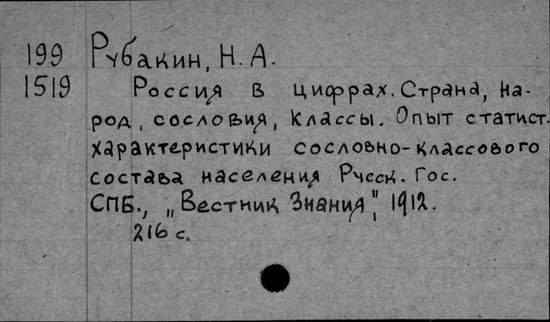 199 Рубакин, Н. А.
1519 Россия в цифрах. Страна, на-
род, сословия, классы. Опыт статист.
характеристики сословно-классового
состава населения Русск. Гос.
СПБ., „Вестник Знания", 1912.
216 с.